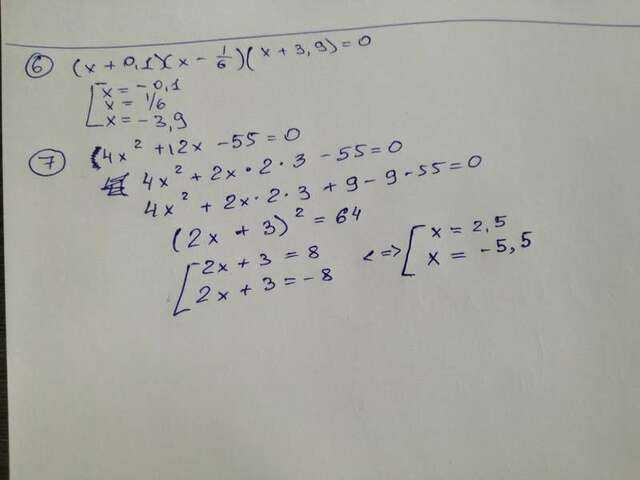 6 (x + 0,1)(x - 1/6)(x + 3,9) = 0
x = -0,1
x = 1/6
x = -3,9
7 (4x² + 12x - 55 = 0
4x² + 2x · 2 · 3 - 55 = 0
4x² + 2x · 2 · 3 + 9 - 9 - 55 = 0
(2x + 3)² = 64
[2x + 3 = 8 <=> [x = 2,5
2x + 3 = -8 x = -5,5